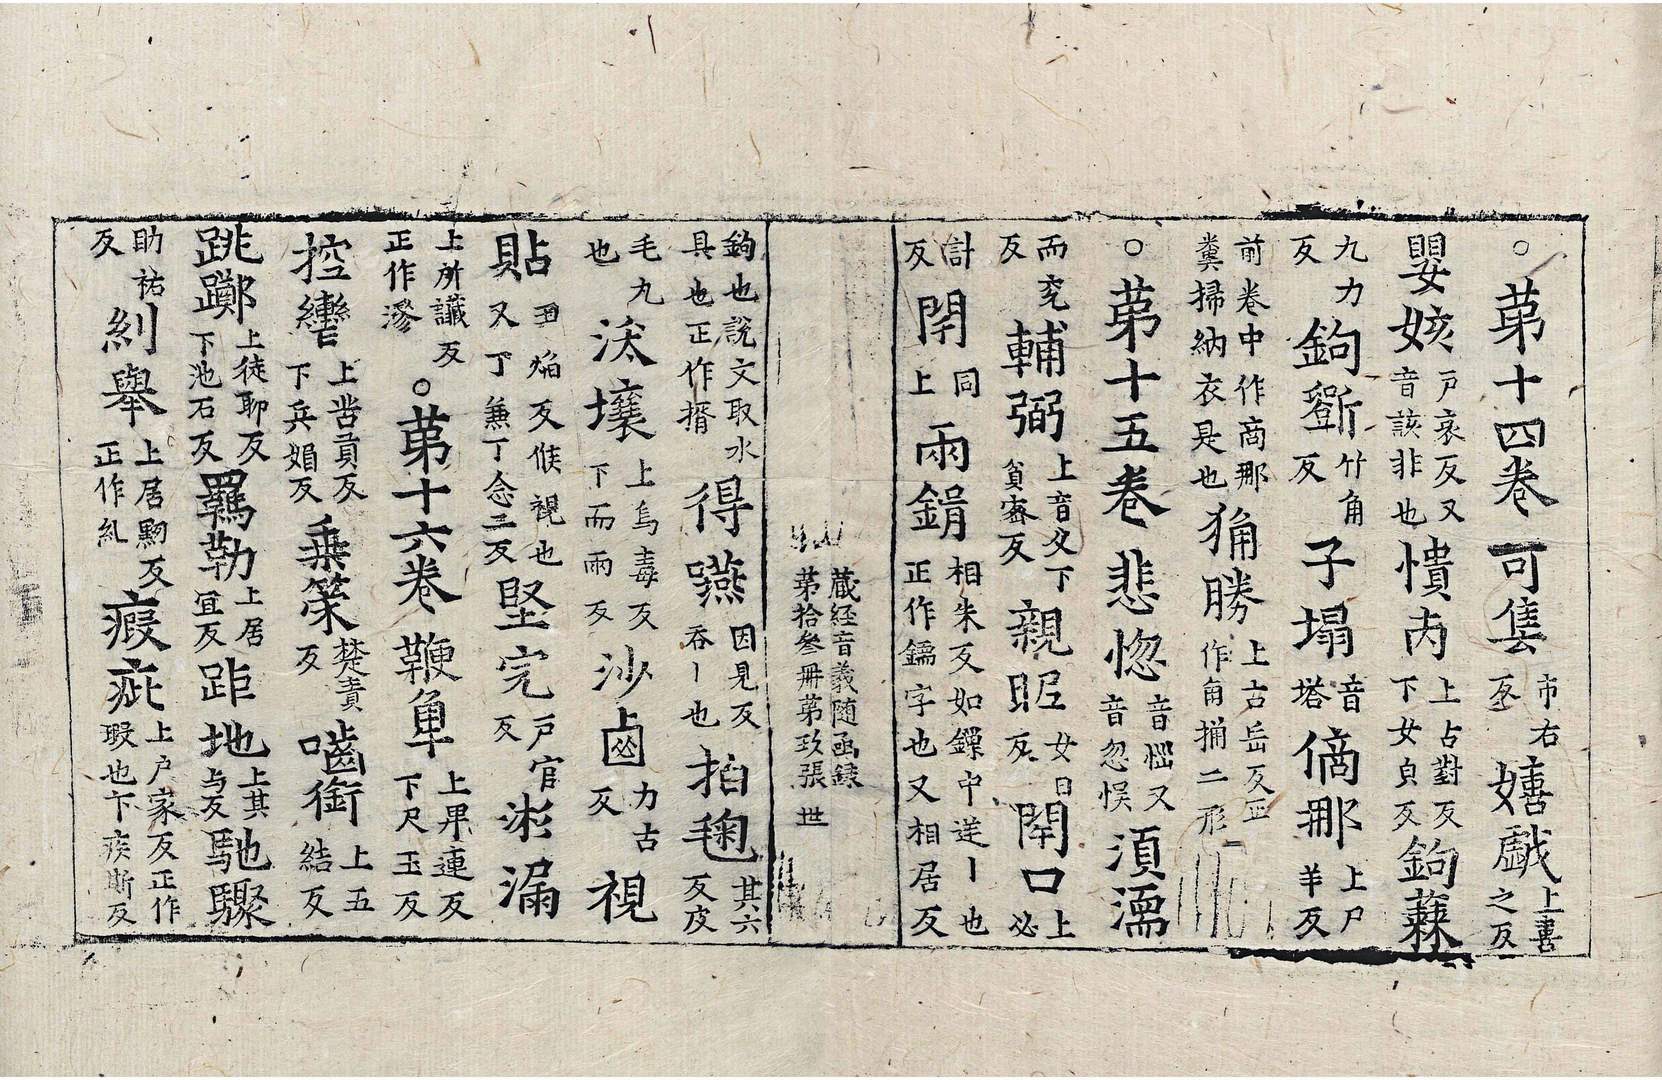 ○第十四卷 可隻 市右反 嬉戯 上善之反
嬰姟 戸哀反又音該非也 憒丙 上古對反下女皃反 鉤蕀
九力反 鉤斵 竹角反 子塌 音塔 傿𨙻 上尸羊反
前卷中作商𨙻糞掃納衣是也 捔勝 上古岳反正作角捔二形
○第十五卷 悲惚 音𢡠又音忽悮 湏濡
而兖反 輔弼 上音父下貧宻反 親昵 女日反 閇口 上必
計反 閇 同上 兩鋗 相朱反如鏁中逆丨也正作鑐字也又相居反
藏經音義随函録
第拾叁冊第玖張 世
鉤也說文取水具也正作揟 得嚥 因見反吞丨也 拍毱 其六反皮
毛丸也 㳲壤 上烏毒反下而兩反 沙鹵 力古反 視
貼 丑焔反候視也又丁兼丁念二反 堅完 戸官反 㵕漏
上所䜟反正作滲 ○第十六卷 鞭卑 上畀連反下尺玉反
控轡 上苦貢反下兵媚反 乗策 楚責反 嚙銜 上五結反
跳躑 上徒聊反下池石反 羈勒 上居宜反 距地 上其与反 馳驟
助祐反 糾舉 上居黝反正作糺 瘕疵 上戸家反正作瑕也下疾斯反